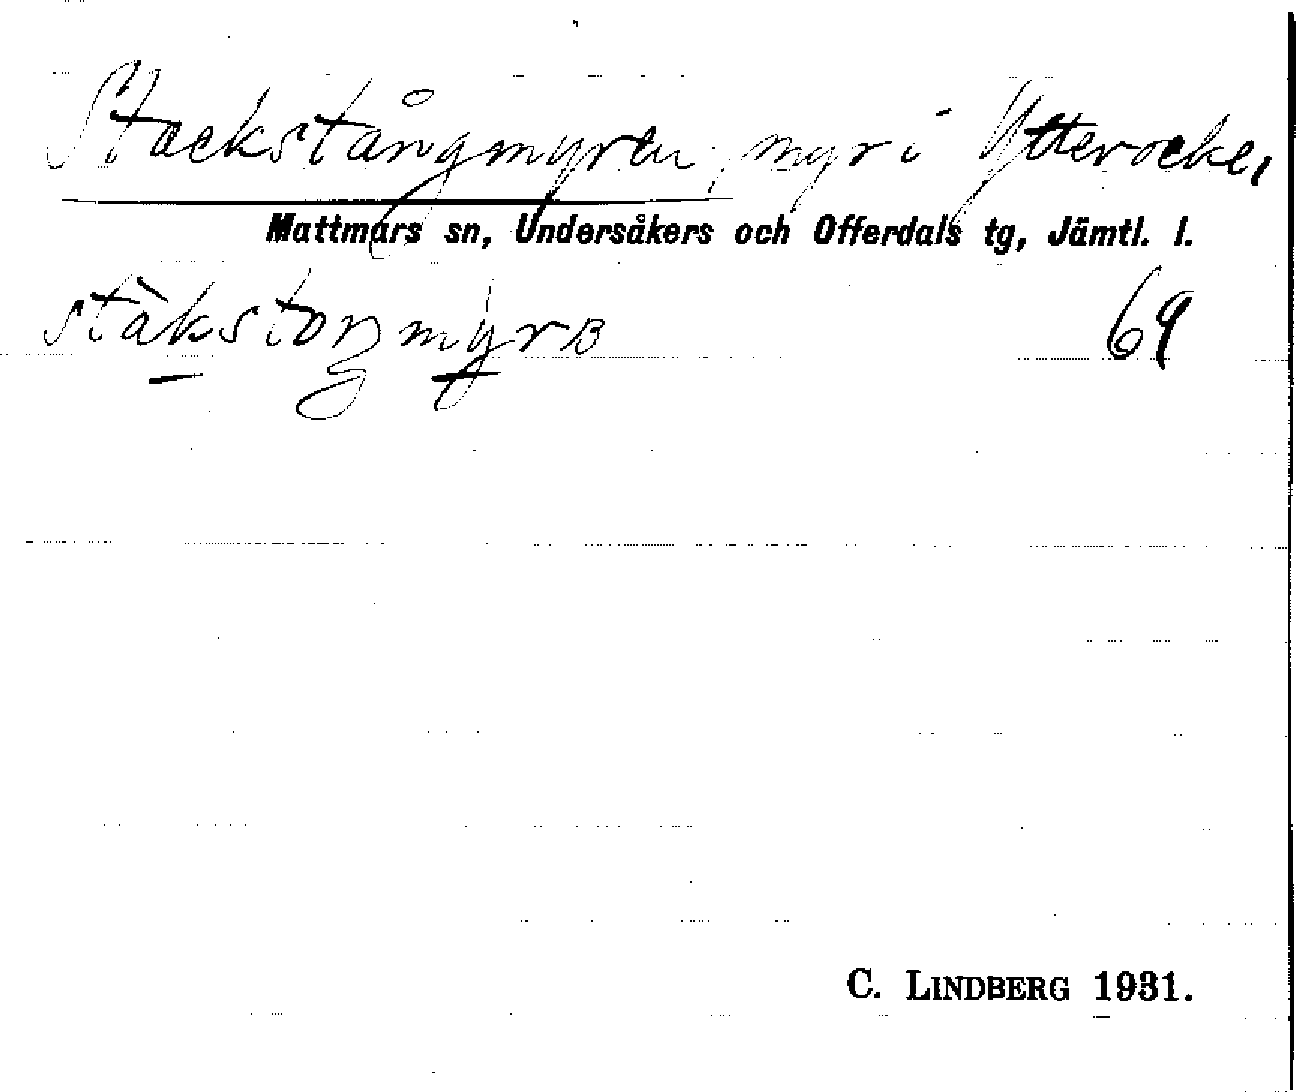 Stackstångmyren, myr i Ytterocke,
Mattmars sn, Undersåkers och Offerdals tg, Jämtl. l.
69
C. LINDBERG 1931.